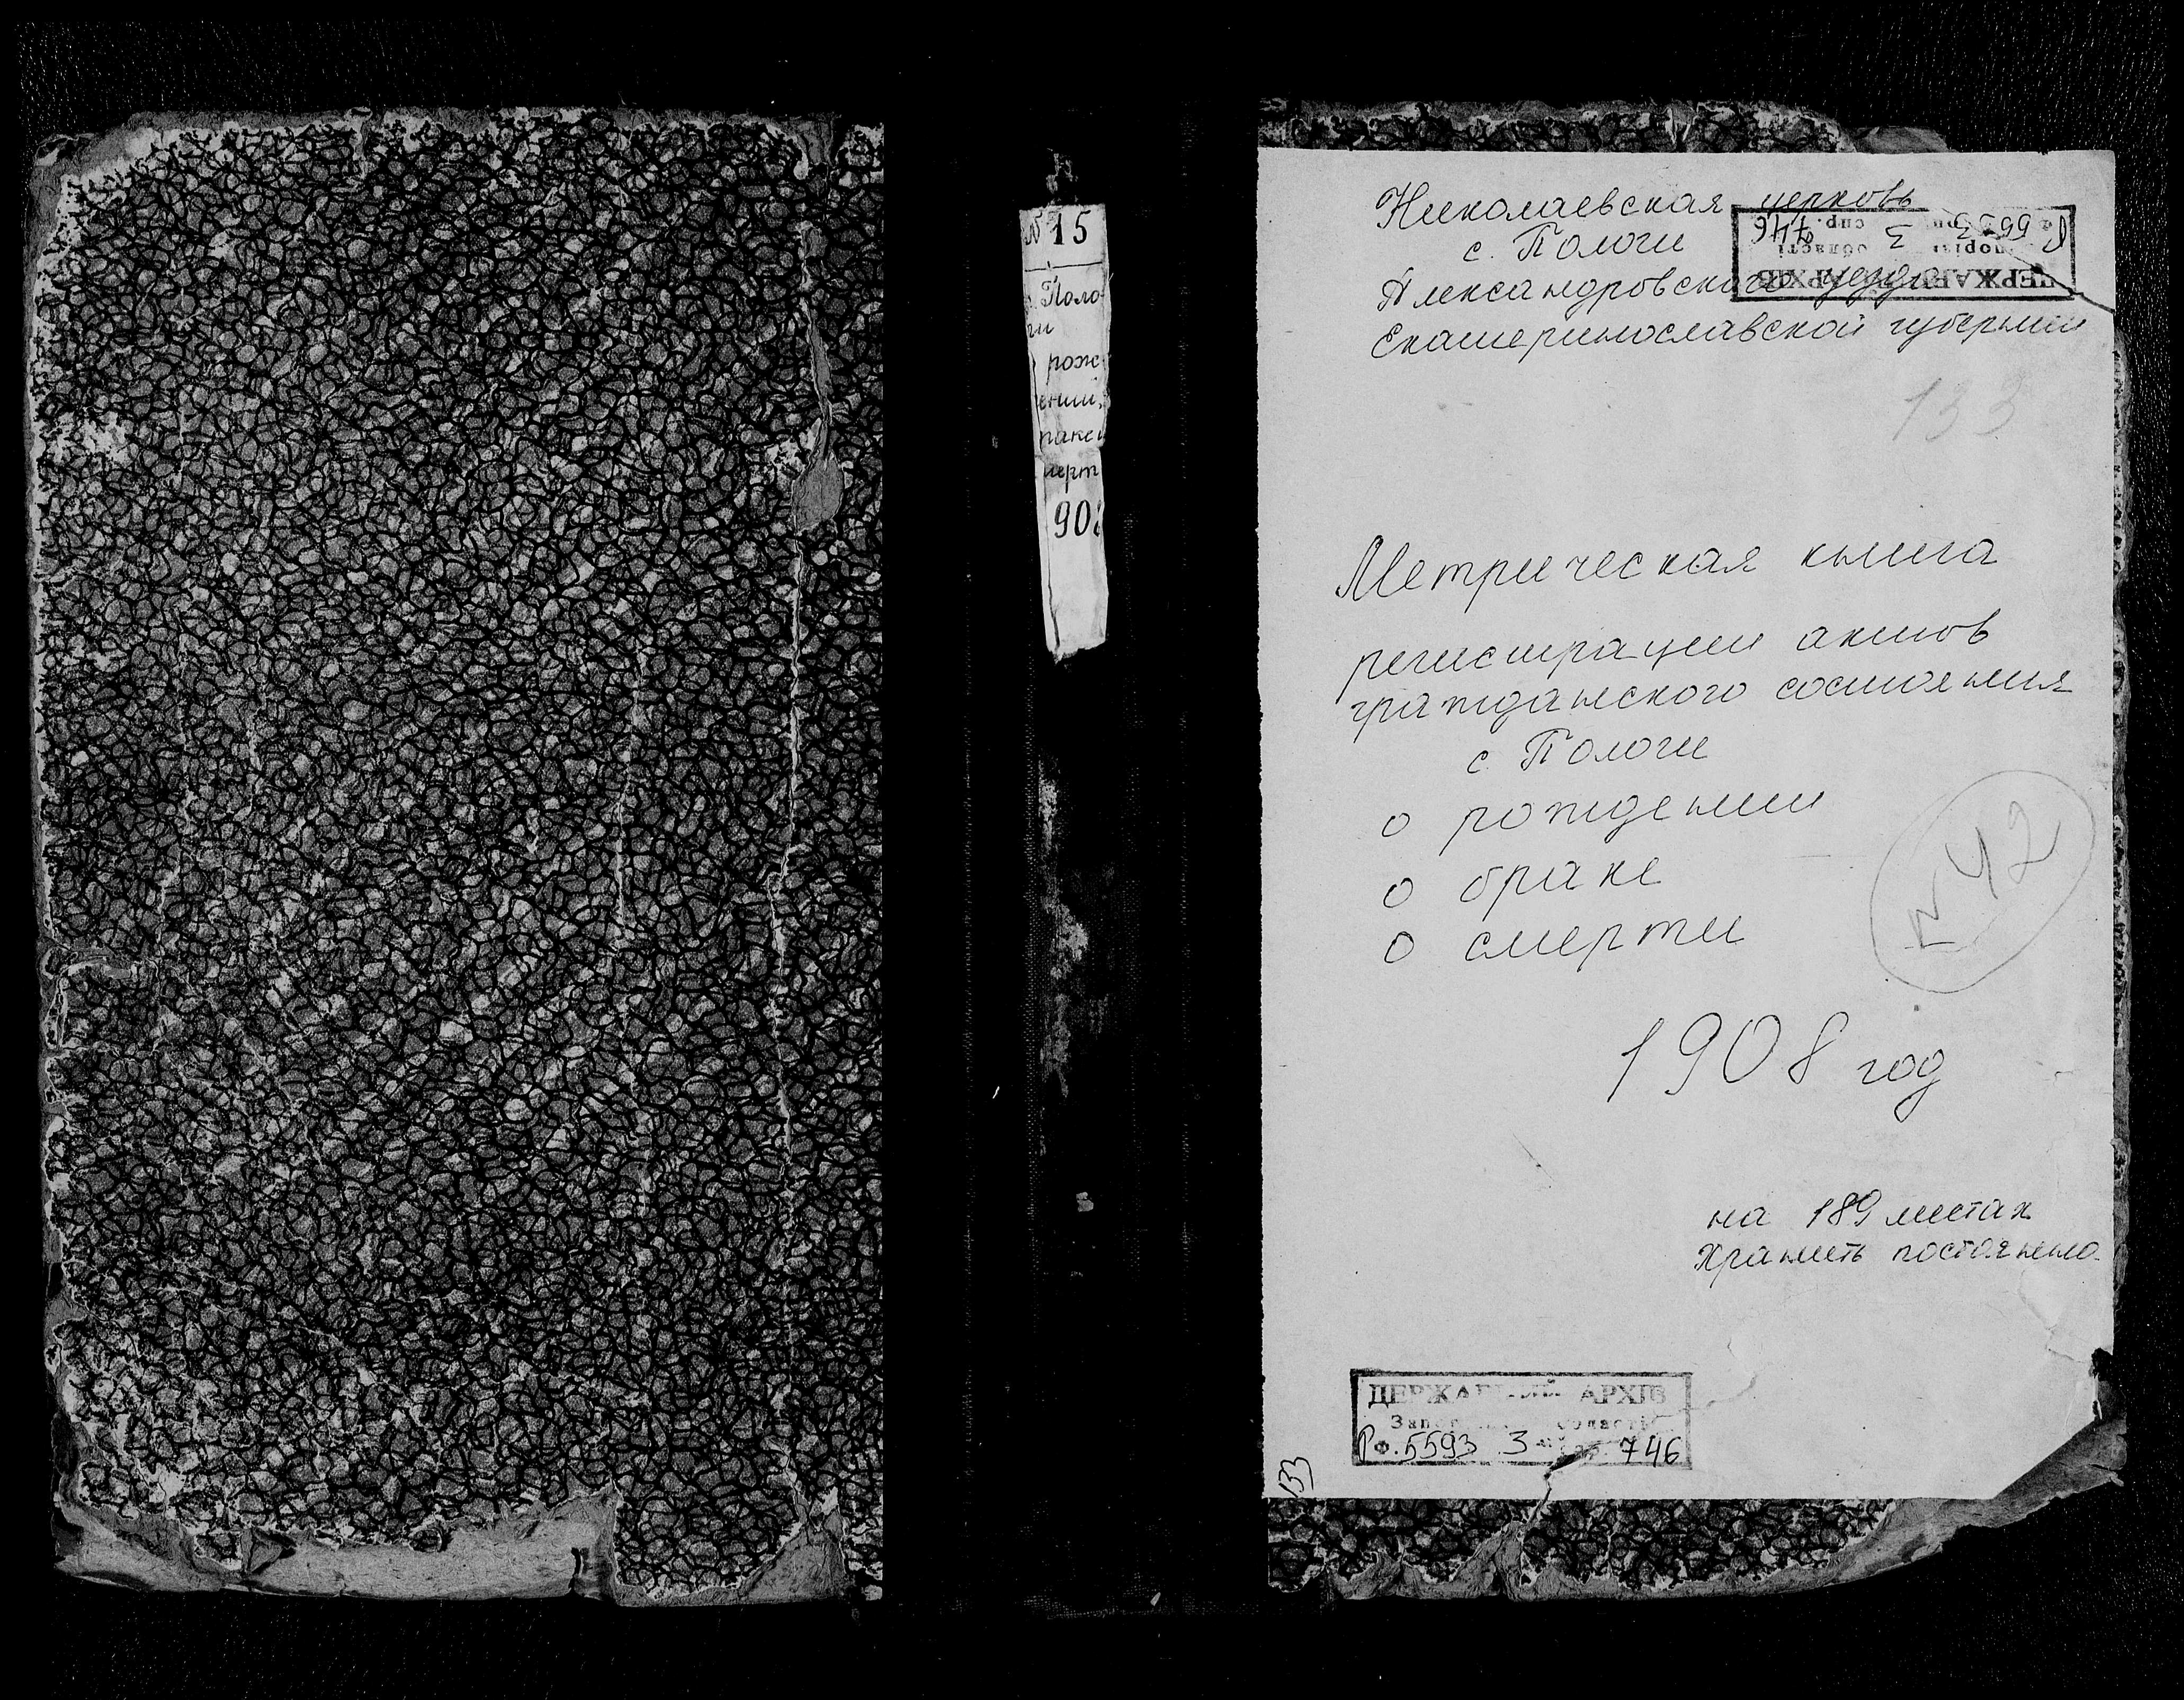 № 15
Поло-
ги
рож
ении,
аке
мерт
908
Николаевская церковь
с. Пологи
Александровского уезда
Екатеринославской губернии
ДЕРЖАВНИЙ АРХІВ
області
Р 5593 3 спр. 746
133
Метрическая книга
регистрации актов
гражданского состояния
с. Пологи
о рождении
о браке
о смерти
N 42
1908 год
на 189 листах
Хранить постоянно.
ДЕРЖАВНЫЙ АРХІВ
Запор області
Р Ф. 5593 3 746
133